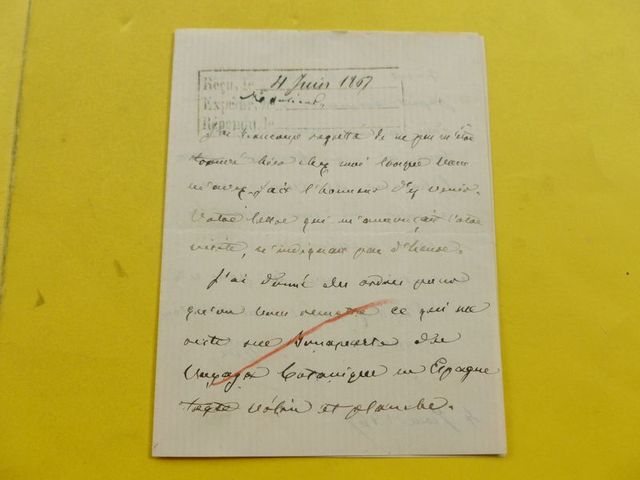 Reçu, le 4 Juin 1867
Expédié, le
Répondu, le
Monsieur,
J'ai beaucoup regretté de ne pas m'être
trouvé hier chez moi lorsque vous
m'avez fait l'honneur d'y venir.
Votre lettre qui m'annonçait votre
visite, n'indiquait pas d'heure.
J'ai donné des ordres pour
qu'on vous remette ce qui me
reste
Voyage botanique en Espagne
texte vélin et planche.